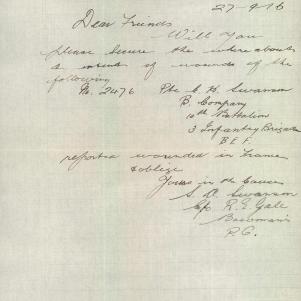 27-9-16
Dear Friends
Will You
please secure the whereabouts
& extent of wounds of the
following
No. 2476 Pte C. H. Swanson
B. Company
10th Battalion
3 Infantry Brigade
B.E.F.
reported wounded in France
& oblige
Yours in the Cause
S. A. Swanson
c/o R. E. Gale
Bowmans
P.O.